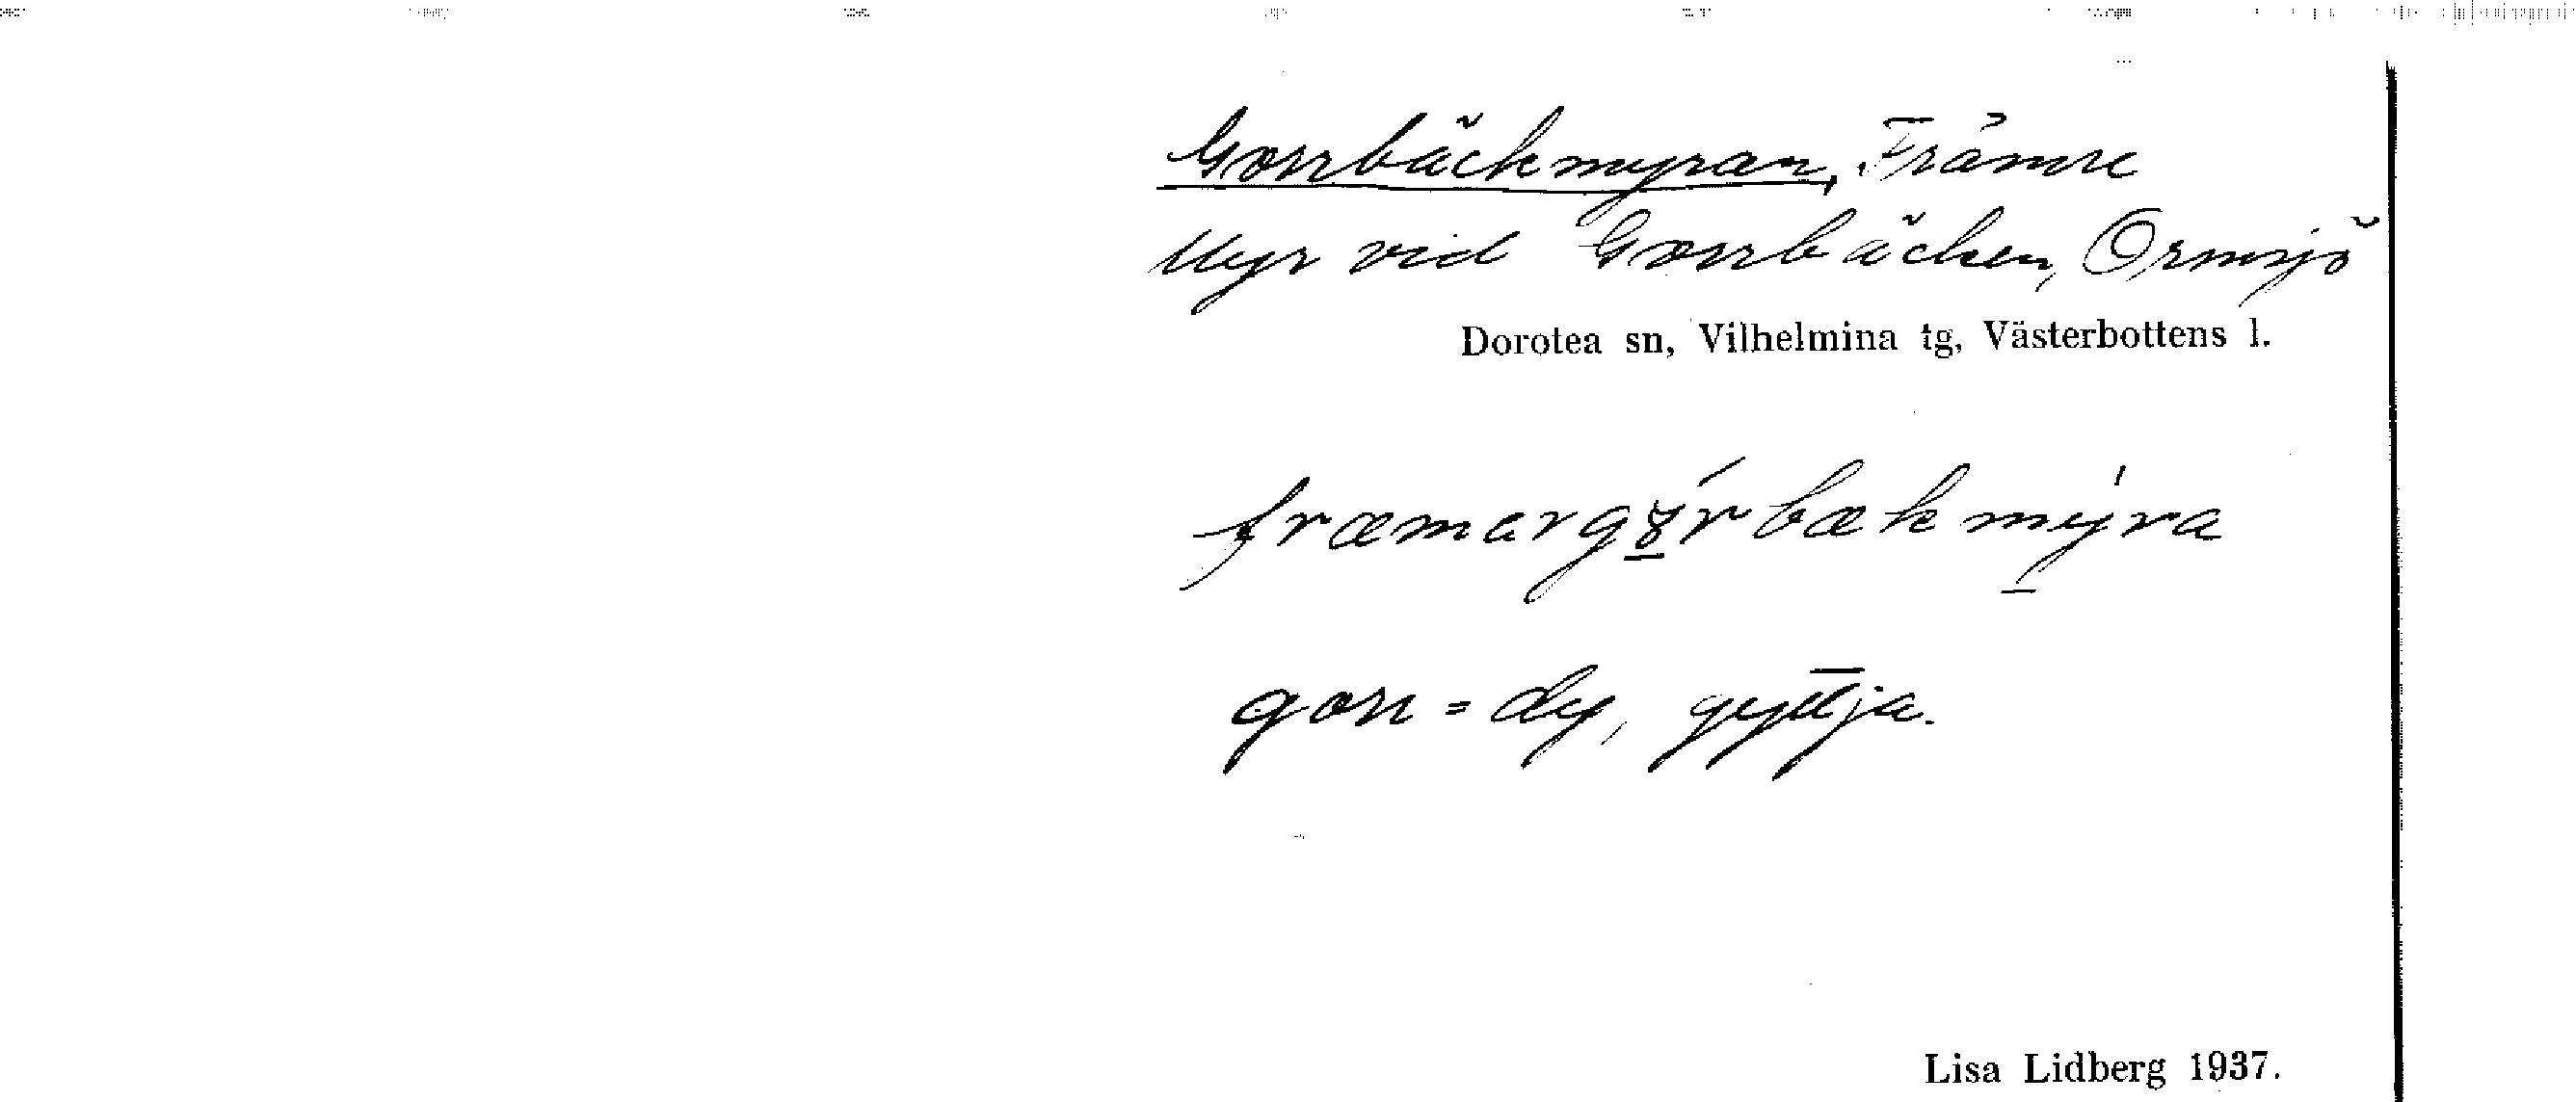 Gorrbäckmyran, Främre
Myr vid Gorrbäcken, Ormsjö
Dorotea sn, Vilhelmina tg, Västerbottens l.
gorr = dy, gyttja.
Lisa Lidberg 1937.